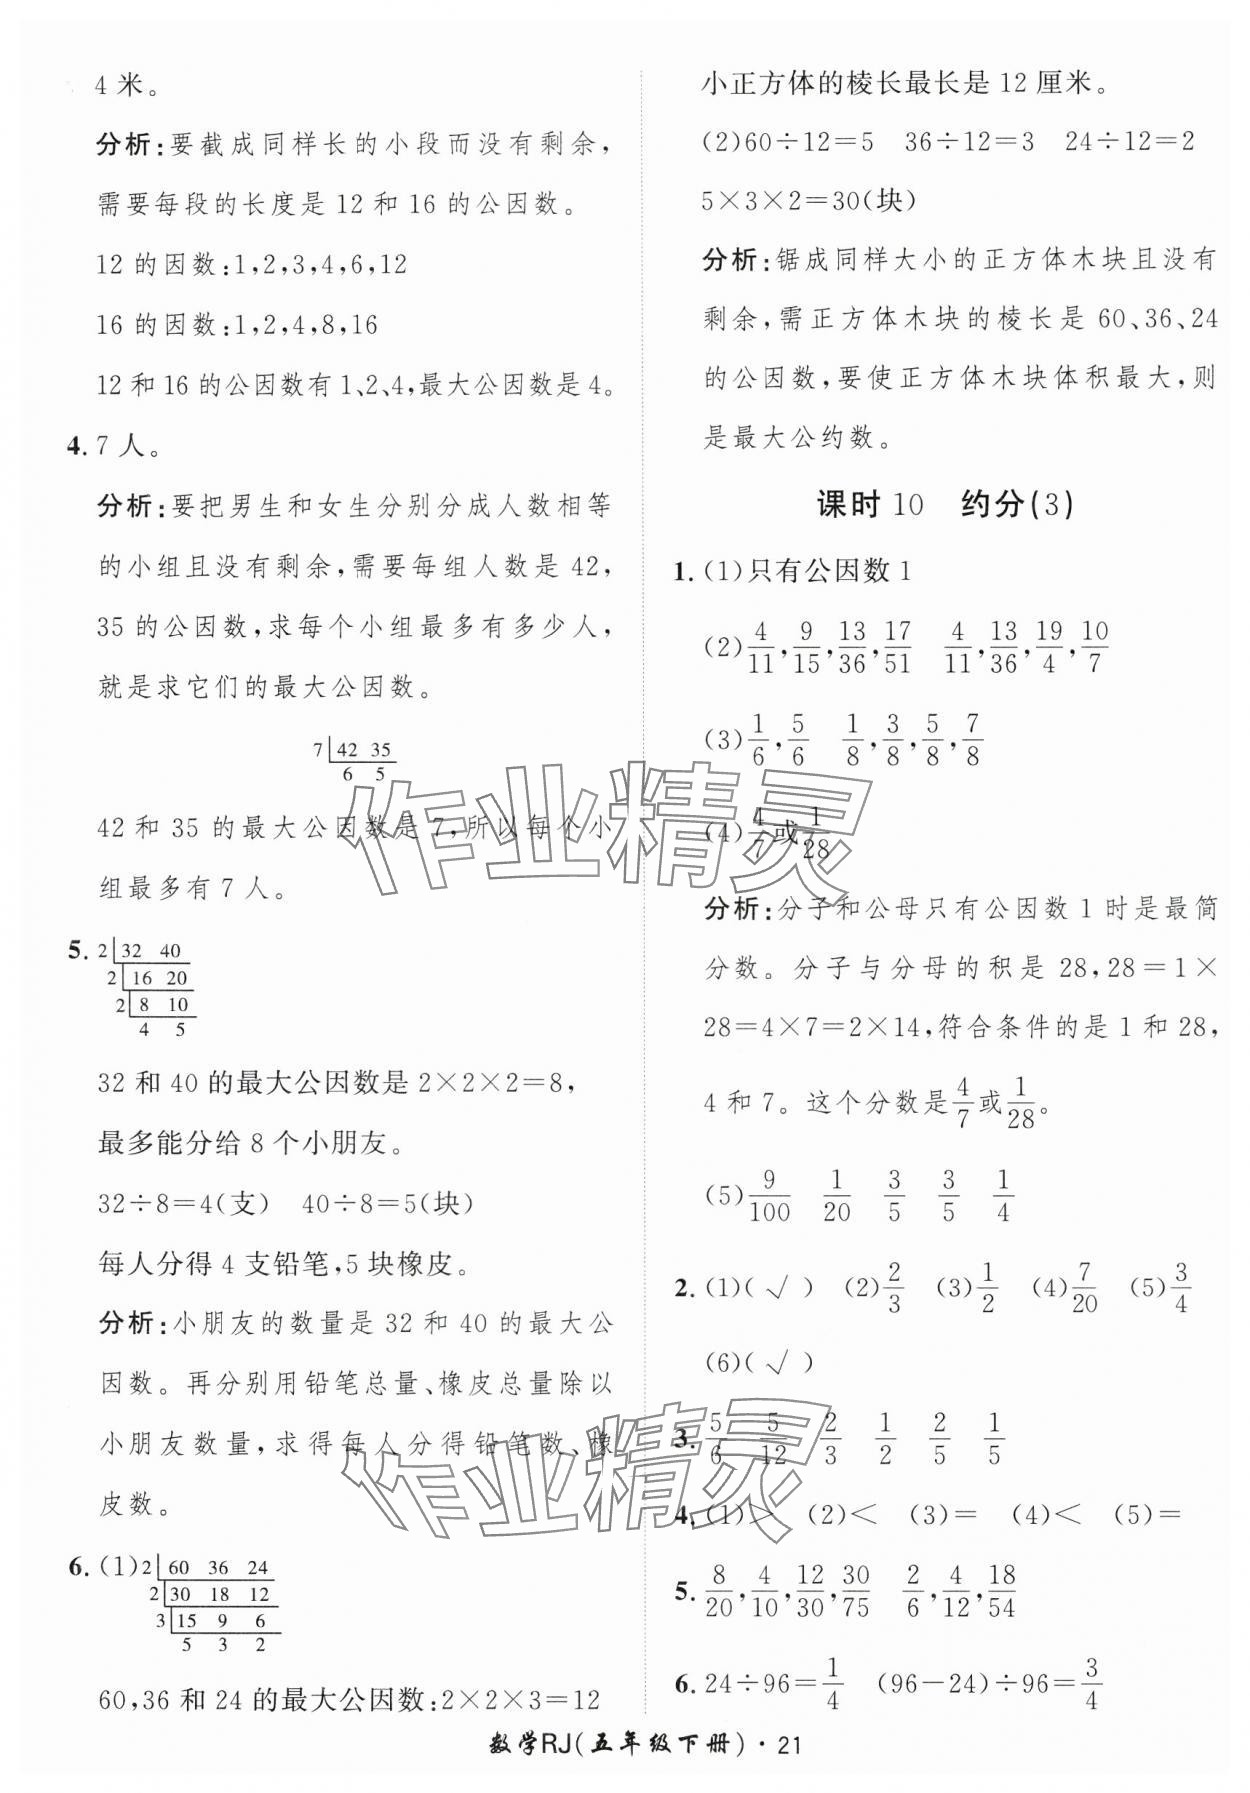 4 米。
分析:要截成同样长的小段而没有剩余,
需要每段的长度是 12 和 16 的公因数。
12 的因数:1,2,3,4,6,12
16 的因数:1,2,4,8,16
12 和 16 的公因数有 1、2、4,最大公因数是 4。
4. 7 人。
分析:要把男生和女生分别分成人数相等
的小组且没有剩余,需要每组人数是 42,
35 的公因数,求每个小组最多有多少人,
就是求它们的最大公因数。
7 42 35
6 5
42 和 35 的最大公因数是 7,所以每个小
组最多有 7 人。
5. 2 32 40
2 16 20
2 8 10
4 5
32 和 40 的最大公因数是 2×2×2=8,
最多能分给 8 个小朋友。
32÷8=4(支) 40÷8=5(块)
每人分得 4 支铅笔,5 块橡皮。
分析:小朋友的数量是 32 和 40 的最大公
因数。再分别用铅笔总量、橡皮总量除以
小朋友数量,求得每人分得铅笔数、橡
皮数。
6. (1) 2 60 36 24
2 30 18 12
3 15 9 6
5 3 2
60,36 和 24 的最大公因数:2×2×3=12
小正方体的棱长最长是 12 厘米。
(2)60÷12=5 36÷12=3 24÷12=2
5×3×2=30(块)
分析:锯成同样大小的正方体木块且没有
剩余,需正方体木块的棱长是 60、36、24
的公因数,要使正方体木块体积最大,则
是最大公约数。
课时 10 约分(3)
1. (1)只有公因数 1
(2)4/11,9/15,13/36,17/51 4/11,13/36,19/4,10/7
(3)1/6,5/6 1/8,3/8,5/8,7/8
(4)4/7或1/28
分析:分子和公母只有公因数 1 时是最简
分数。分子与分母的积是 28,28=1×
28=4×7=2×14,符合条件的是 1 和 28,
4 和 7。这个分数是4/7或1/28。
(5)9/100 1/20 3/5 3/5 1/4
2. (1)( √ ) (2)2/3 (3)1/2 (4)7/20 (5)3/4
(6)( √ )
3. 5/6 5/12 2/3 1/2 2/5 1/5
4. (1)> (2)< (3)= (4)< (5)=
5. 8/20,4/10,12/30,30/75 2/6,4/12,18/54
6. 24÷96=1/4 (96-24)÷96=3/4
数学RJ(五年级下册)·21
作业精灵
作业精灵